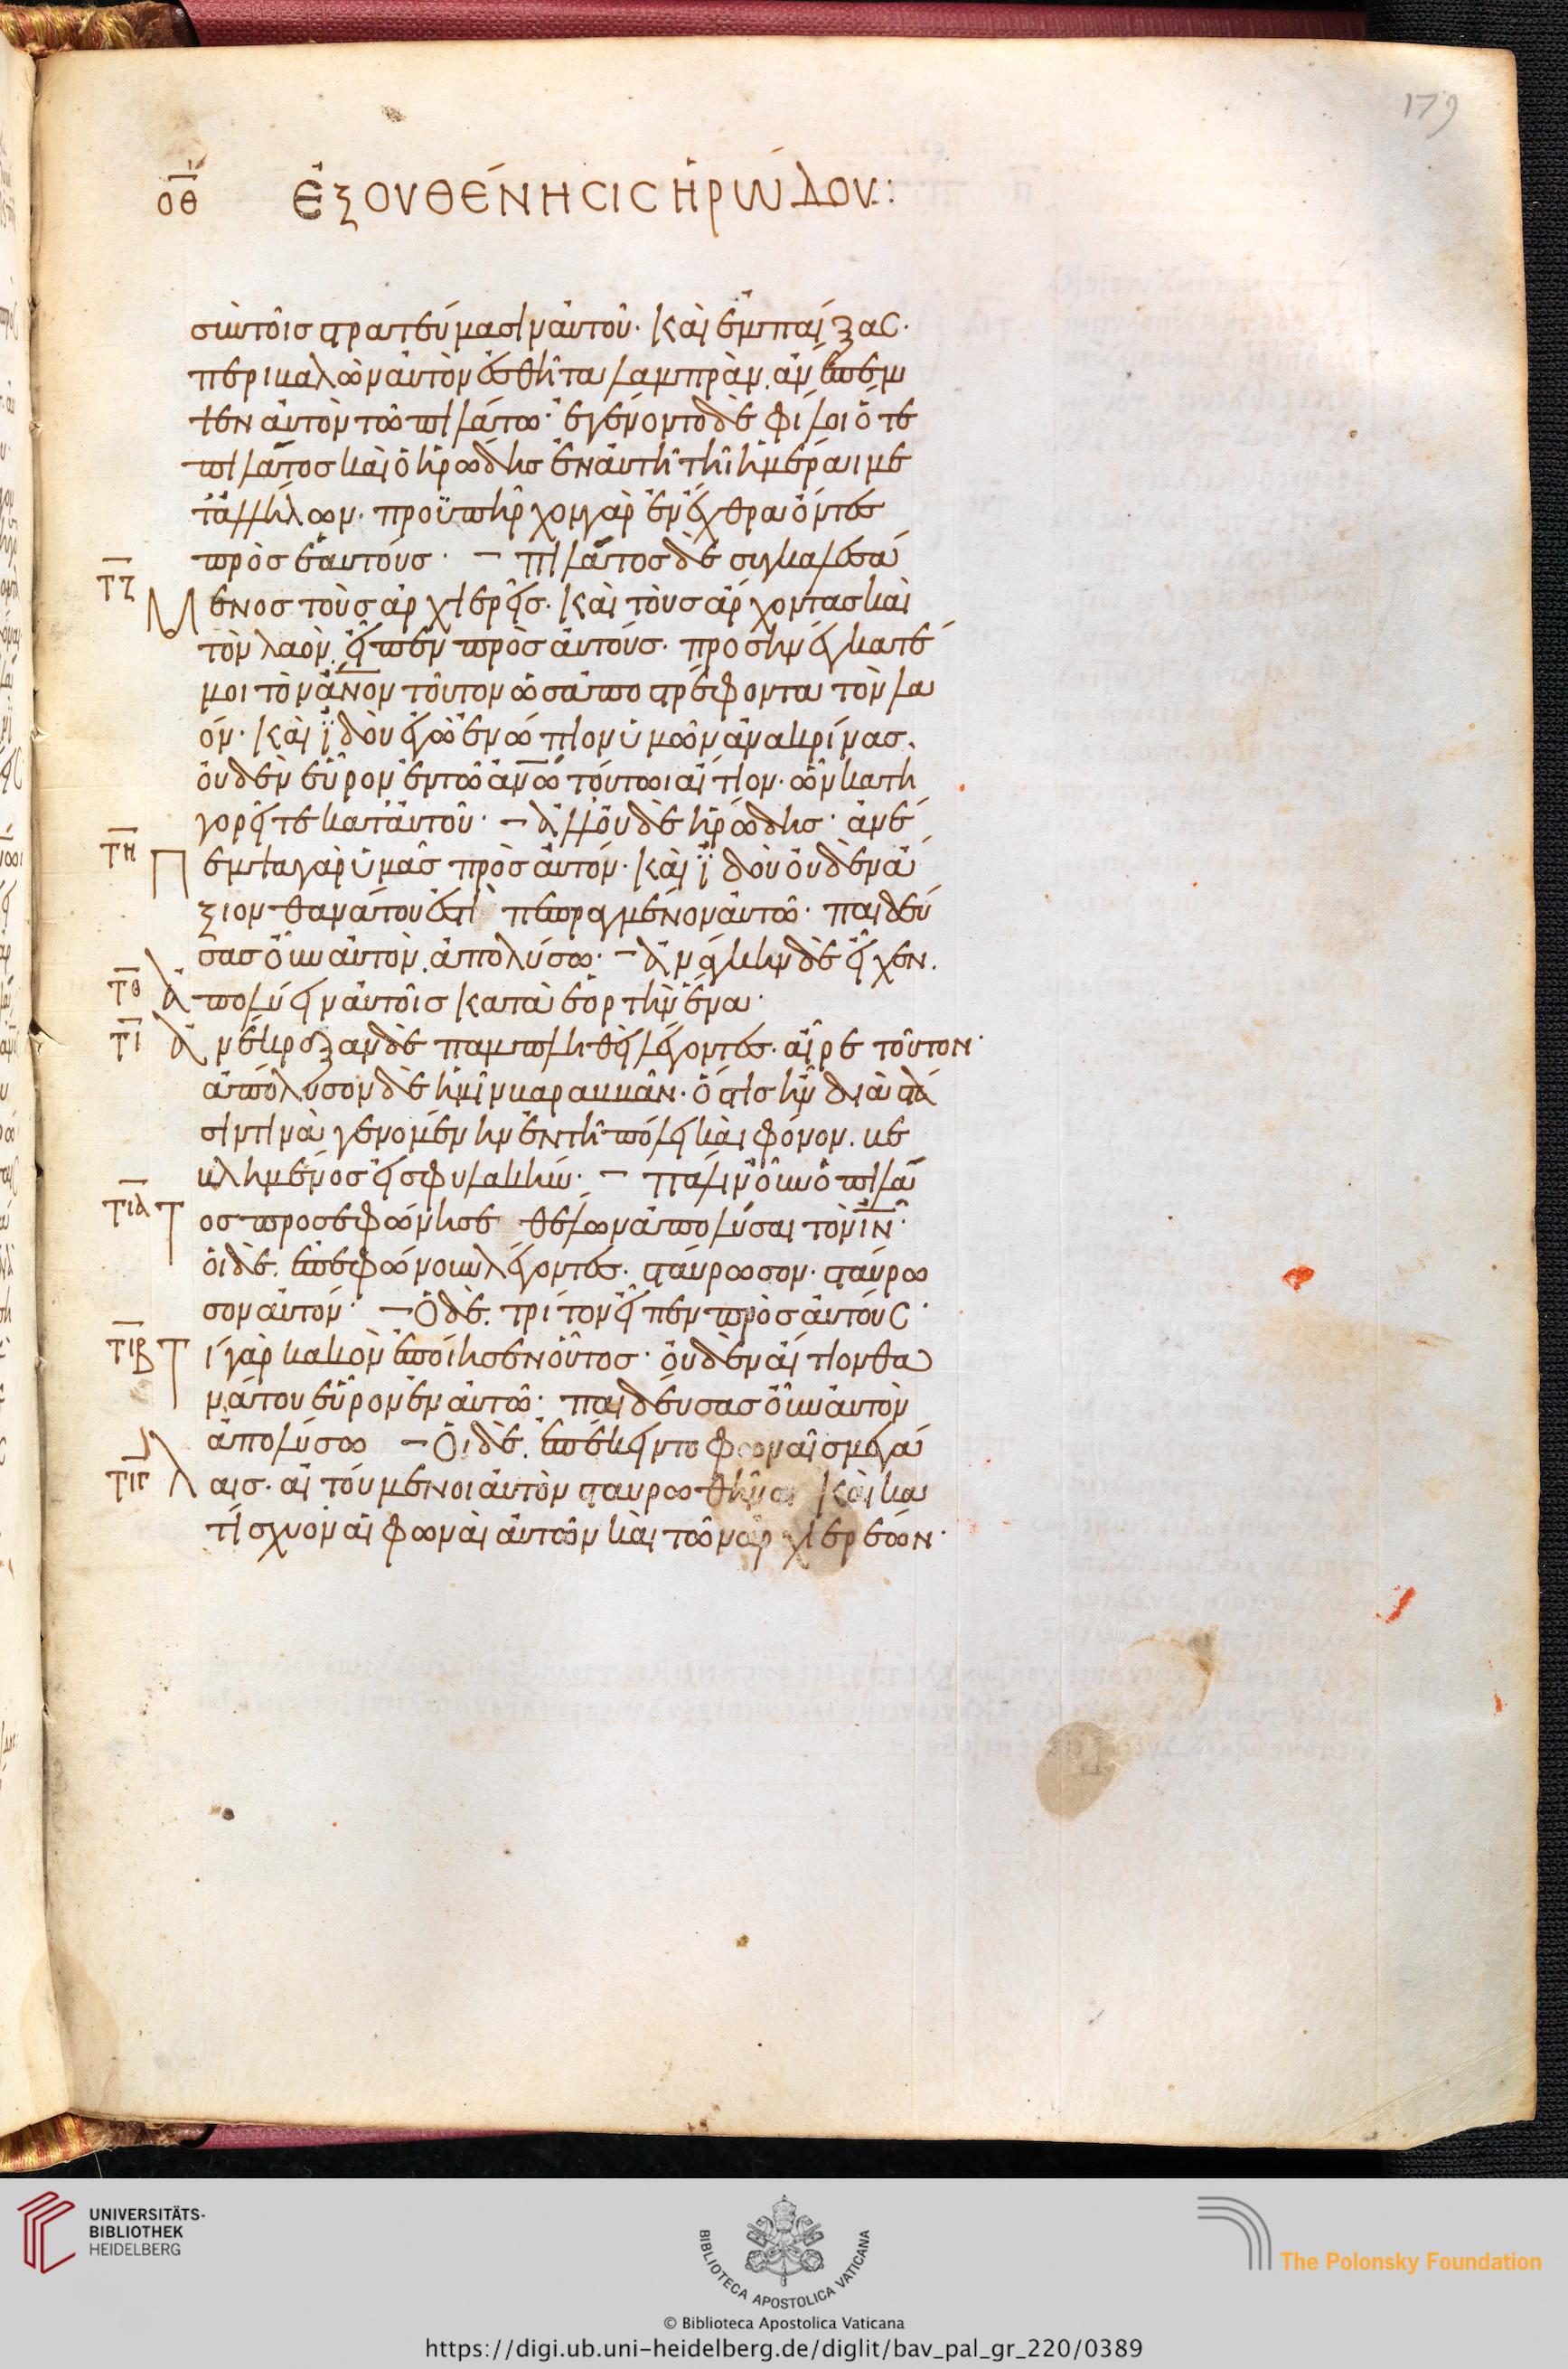 179
οθ ἘΞΟΥΘΈΝΗCΙC ἩΡΏΔΟΥ:
σὺν τοῖς στρατεύμασιν αὐτοῦ· καὶ ἐμπαίξας·
περιβαλὼν αὐτὸν ἐσθῆτα λαμπρὰν, ἀνέπεμ
ψεν αὐτὸν τῶ πιλάτω· ἐγένοντο δὲ φίλοι ὅ τε
πιλάτος καὶ ὁ ἡρώδης ἐν αὐτῆ τῆ ἡμέραι με
τ' ἀλλήλων· προϋπῆρχον γὰρ ἐν ἔχθραι ὄντες
πρὸς ἑαυτούς· – πιλάτος δὲ συγκαλεσά
τζ
μενος τοὺς ἀρχιερεῖς· καὶ τοὺς ἄρχοντας καὶ
τὸν λαὸν, εἶπεν πρὸς αὐτούς· προσηνέγκατέ
μοι τὸν ἄνον τοῦτον ὡς ἀποστρέφοντα τὸν λα
όν· καὶ ἰδοὺ ἐγὼ ἐνώπιον ὑμῶν ἀνακρίνας,
οὐδὲν εὗρον ἐν τῶ ἀνω τούτωι αἴτιον· ὧν κατη
γορεῖτε κατ' αὐτοῦ· – ἀλλ' οὐδὲ ἡρώδης· ἀνέ
τη
πεμψα γὰρ ὑμᾶς πρὸς αὐτόν· καὶ ἰδοὺ οὐδὲν ἄ
ξιον θανάτου ἐστὶ πεπραγμένον αὐτῶ· παιδεύ
σας οὖν αὐτὸν, ἀπολύσω· – ἀνάγκην δὲ εἶχεν,
τθ
ἀπολύειν αὐτοῖς κατὰ ἑορτὴν ἕνα·
τι
ἀνέκραξαν δὲ παμπληθεὶ λέγοντες· αἶρε τοῦτον·
ἀπόλυσον δὲ ἡμῖν βαραββᾶν· ὅστις ἦν διὰ στά
σιν τινὰ γενομένην ἐν τῆ πόλει καὶ φόνον, βε
βλημένος εἰς φυλακήν· – πάλιν οὖν ὁ πιλά
τια
τος προσεφώνησε θέλων ἀπολῦσαι τὸν ιν·
οἱ δὲ, ἐπεφώνουν λέγοντες· σταύρωσον· σταύρω
σον αὐτόν· – ὁ δὲ, τρίτον εἶπεν πρὸς αὐτούς·
τιβ
τί γὰρ κακὸν ἐποίησεν οὗτος· οὐδὲν αἴτιον θα
νάτου εὗρον ἐν αὐτῶ· παιδεύσας οὖν αὐτὸν
ἀπολύσω – οἱ δὲ, ἐπέκειντο φωναῖς μεγά
τιγ
λαις· αἰτούμενοι αὐτὸν σταυρωθῆναι καὶ κα
τίσχυον αἱ φωναὶ αὐτῶν καὶ τῶν ἀρχιερέων·
UNIVERSITÄTS-
BIBLIOTHEK
HEIDELBERG
BIBLIOTECA APOSTOLICA VATICANA
The Polonsky Foundation
© Biblioteca Apostolica Vaticana
https://digi.ub.uni-heidelberg.de/diglit/bav_pal_gr_220/0389